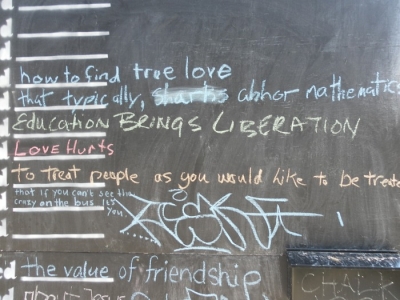 how to find true love
that typically, sharks abhor mathematics
EDUCATION BRINGS LIBERATION
LOVE HURTS
to treat people as you would like to be treate
that if you can't see the
crazy on the bus it's
you
the value of friendship
CHALK